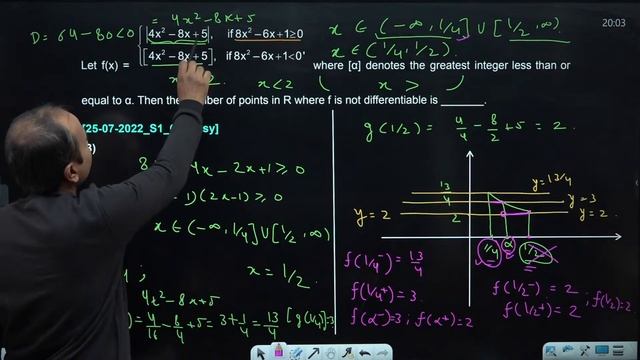 20:03
= 4x² – 8x + 5
D = 64 – 80 < 0
x ∈ (–∞, 1/4] ∪ [1/2, ∞).
x ∈ (1/4, 1/2).
Let f(x) = { |4x² – 8x + 5|, if 8x² – 6x + 1 ≥ 0
[4x² – 8x + 5], if 8x² – 6x + 1 < 0'
where [α] denotes the greatest integer less than or
x < 2 ( x > )
equal to α. Then the number of points in R where f is not differentiable is ______.
[25-07-2022_S1_ sy]
3)
4x – 2x + 1 ≥ 0
1) (2x – 1) ≥ 0
x ∈ (–∞, 1/4] ∪ [1/2, ∞)
;
x = 1/2.
4x² – 8x + 5
) = 4/16 – 8/4 + 5 = 3 + 1/4 = 13/4
[g(1/4)] = 3
g(1/2) = 4/4 – 8/2 + 5 = 2.
13
4
2
y = 13/4
y = 3
y = 2.
y = 2
1/4 α 1/2
f(1/4⁻) = 13/4
f(1/4⁺) = 3.
f(α⁻) = 3 ; f(α⁺) = 2
f(1/2⁻) = 2
f(1/2⁺) = 2 ; f(1/2) = 2